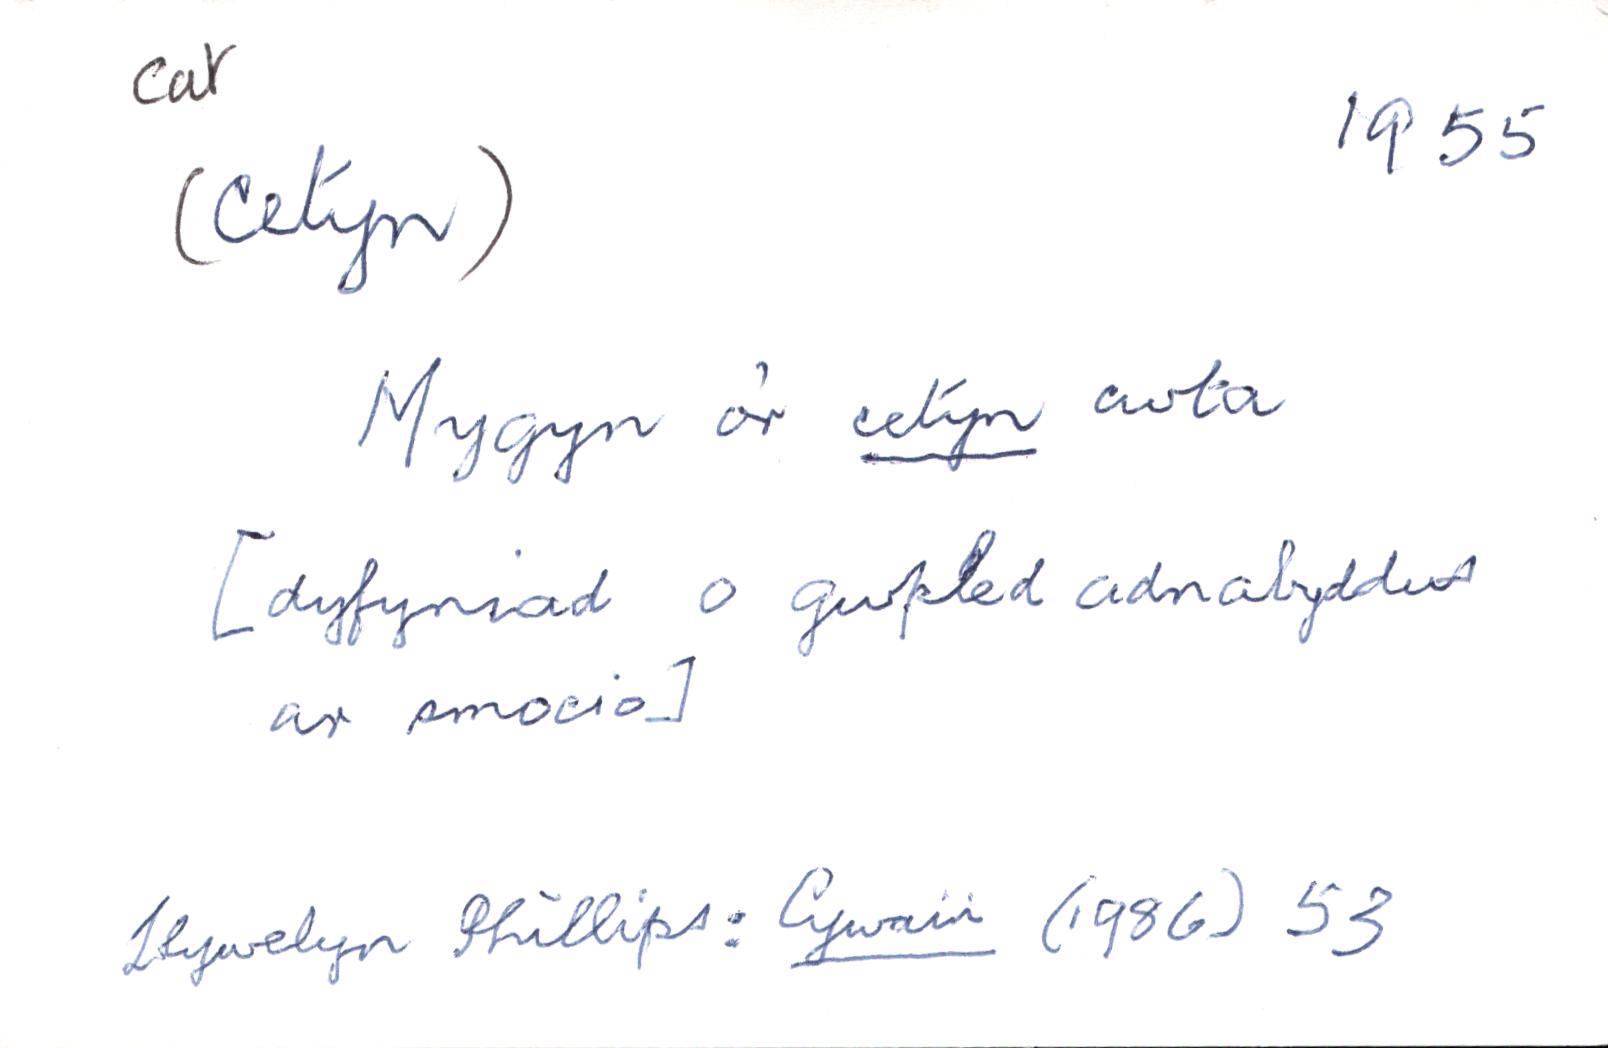 cat
1955
(Cetyn)
Mygyn o'r cetyn cwta
[dyfyniad o gwpled adnabyddus
ar smocio]
Llywelyn Phillips: Cywain (1986) 53